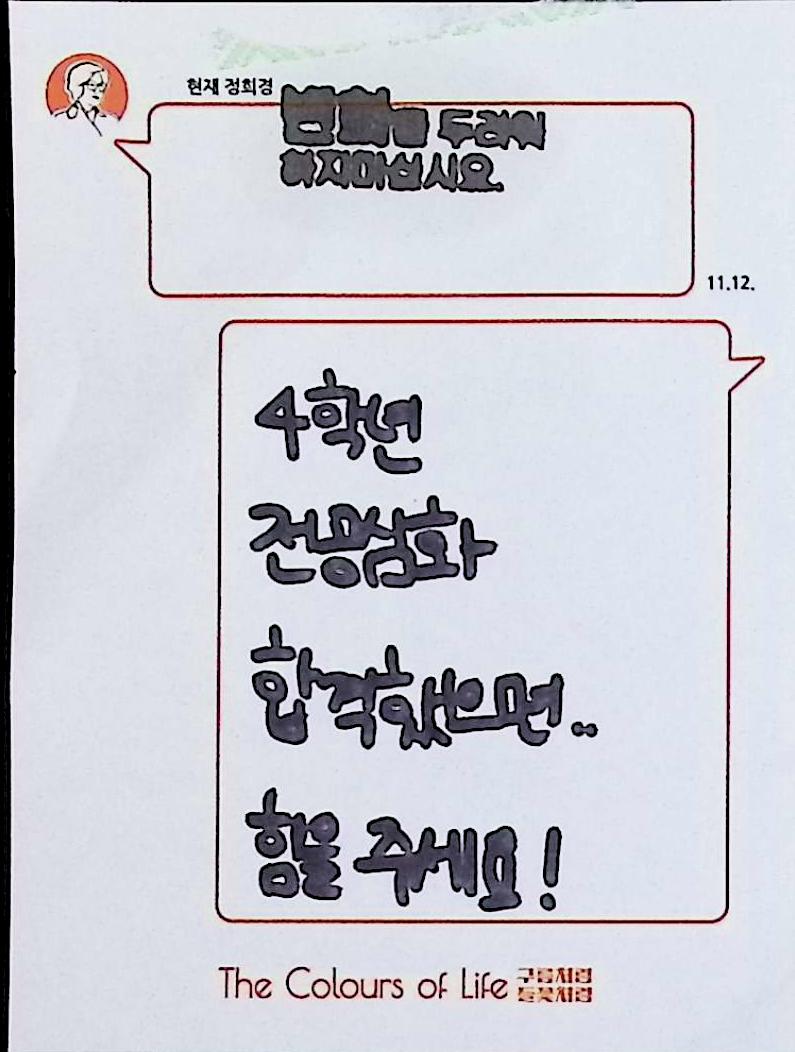 현재 정희경
변화를 두려워
하지마십시오.
11.12.
4학년
전봉심화
합격했으면..
힘을 주세요!
The Colours of Life 구름처럼
들꽃처럼